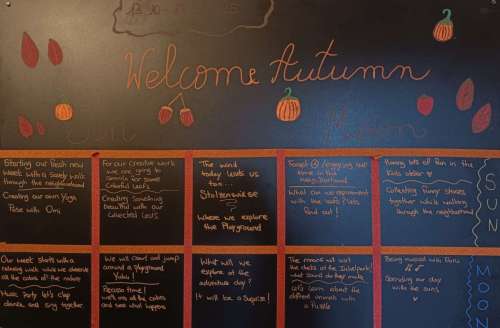 Welcome Autumn
Starting our fresh new
week with a lovely walk
through the neighborhood
Creating our own Yoga
Pose with Omi
For our Creative work
we are going to
some
Colorful Leafs
Creating Something
beautiful with our
Collected Leafs
The wind
today leads us
too...
Where we explore
the Playground
enjoying our
time in the
neighborhood
What can we experiment
with the Leafs? Lets
Find out!
Having lots of Fun in the
Kids atelier
Collecting funny stones
together while walking
through the neighborhood
SUN
Our week starts with a
relaxing walk while we observe
all the colors of the nature
Music Party let's clap
dance and sing together
We will count and jump
around a playground
Yuhu!
Picasso time!
we'll mix all the colors
and see what happens
What will we
explore at the
adventure day?
It will be a Surprise!
what sound do they make
Let's learn about the
different animals with
a Puzzle
Being musical with
Spending our day
with the suns
MOON